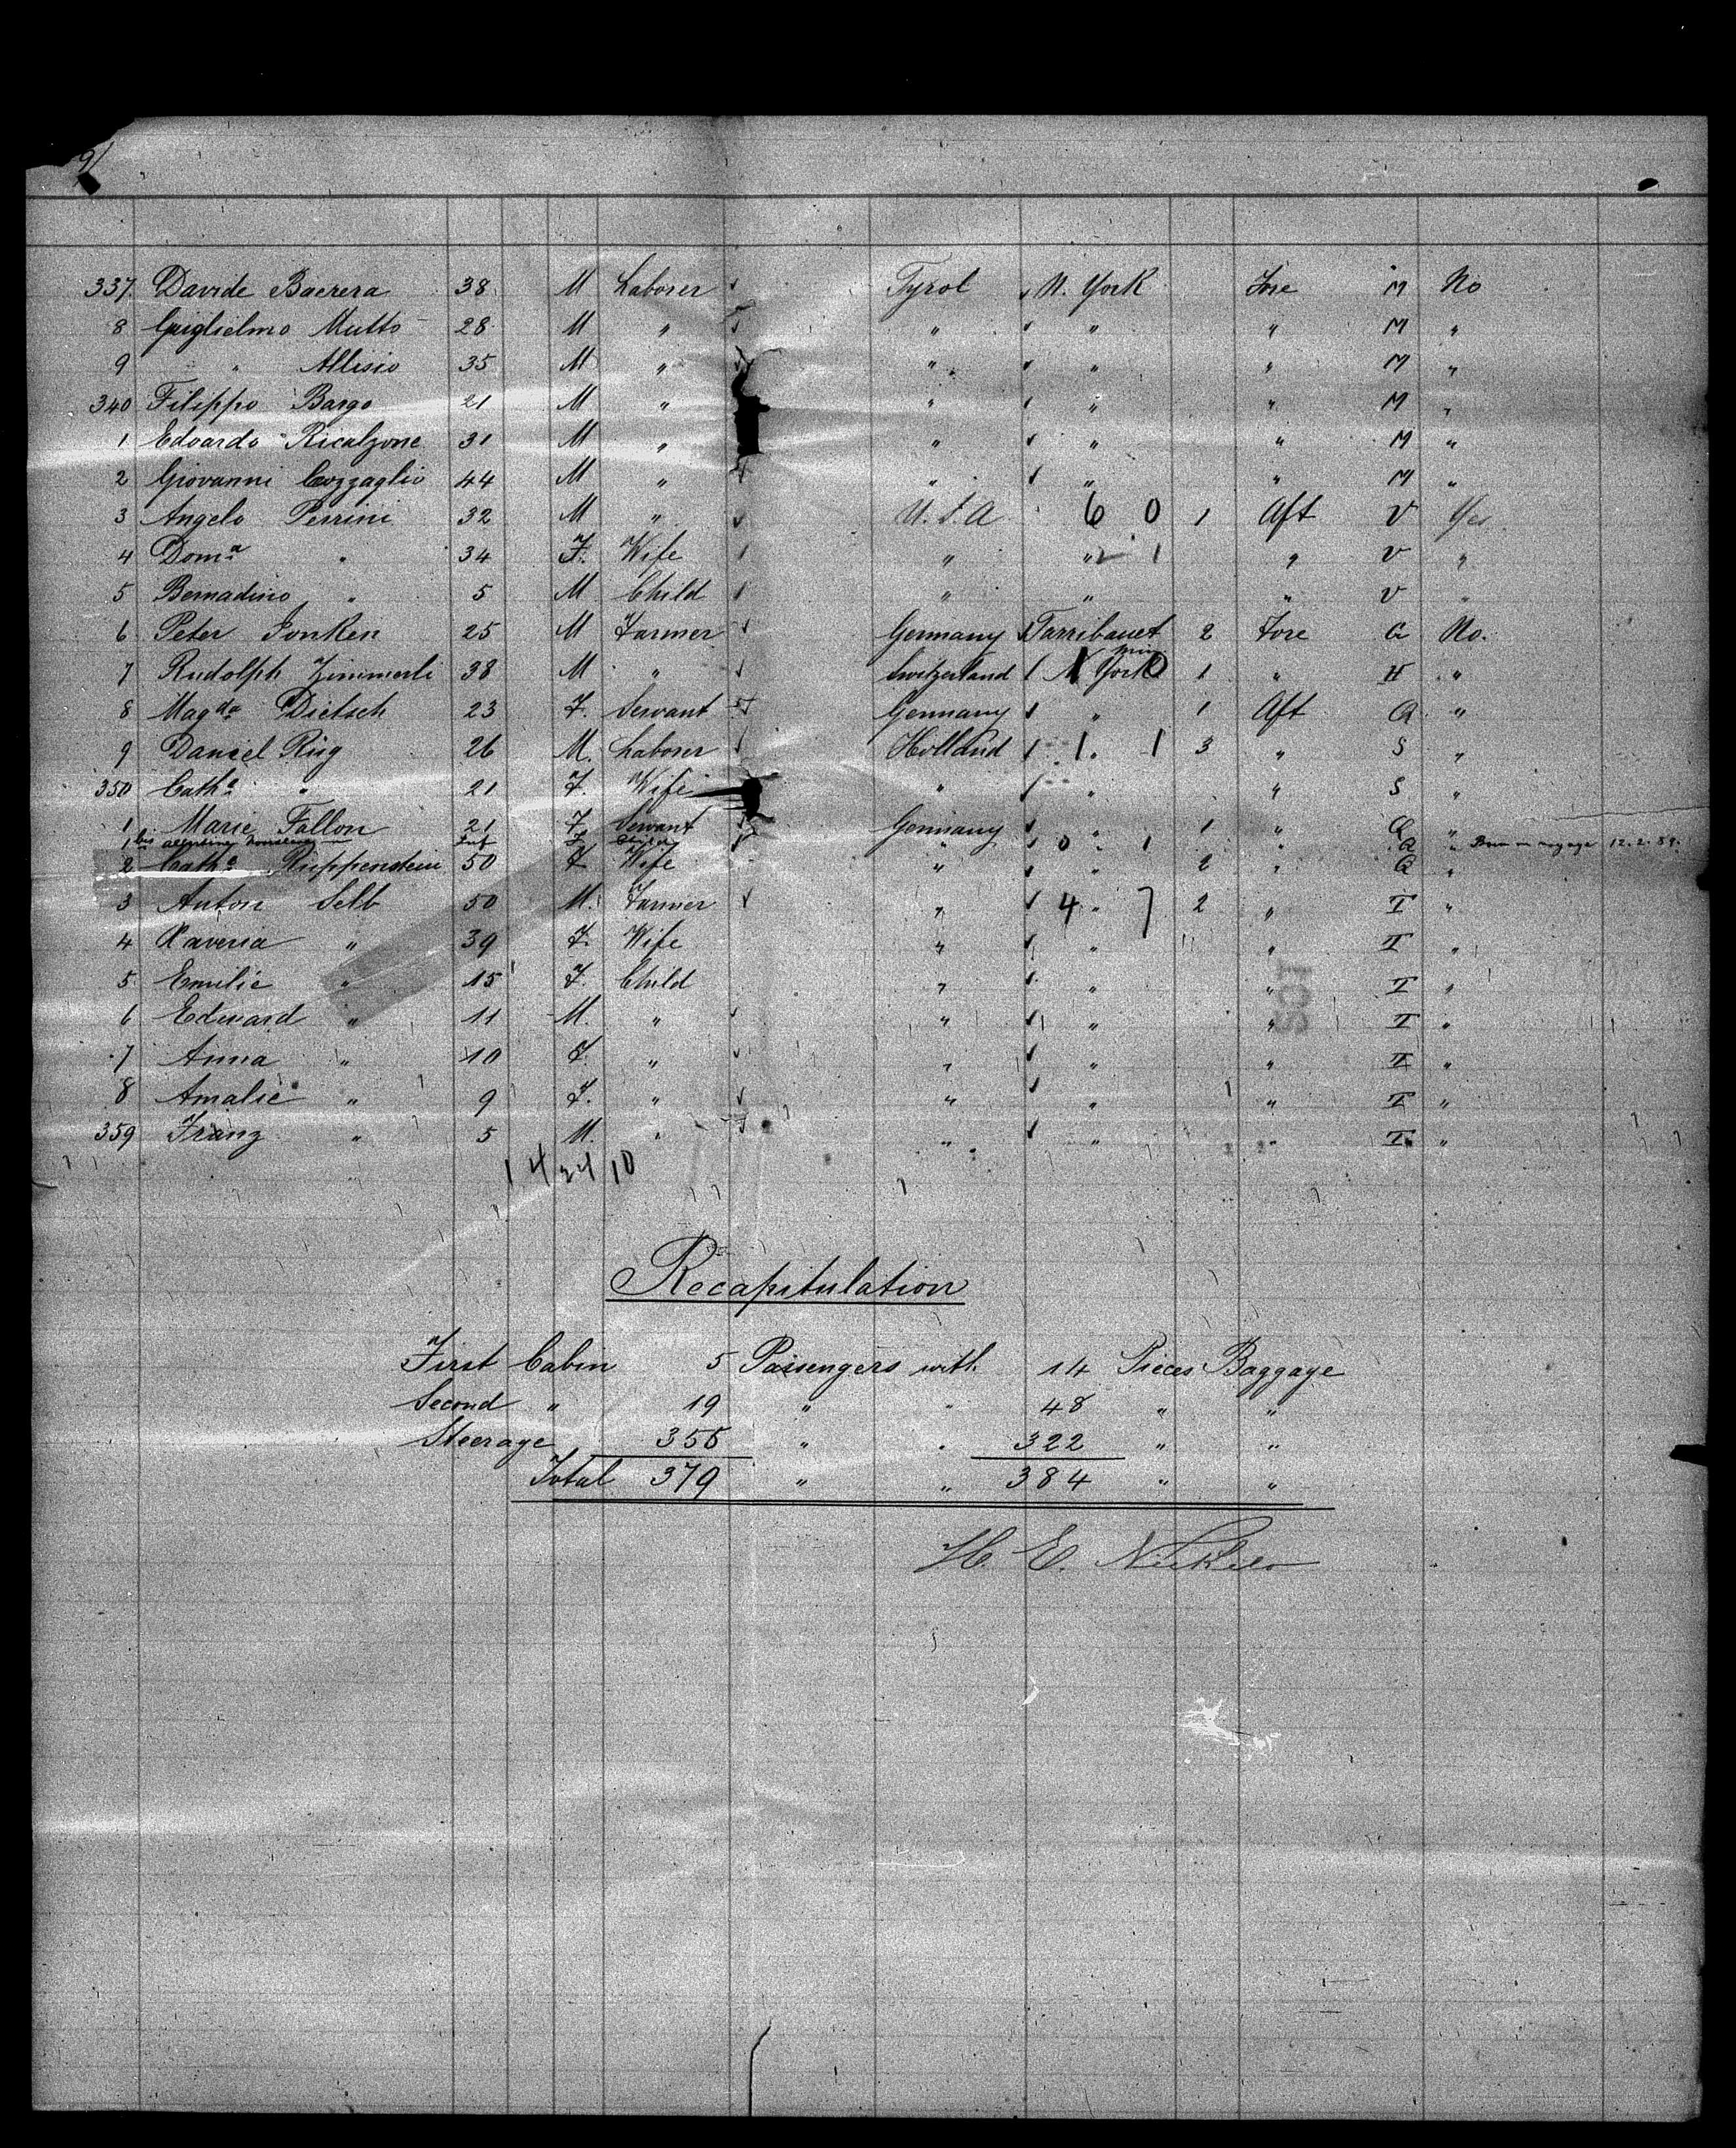 91
337. Davide Baerera 38 M Laborer Tyrol N. York Fore M No
8 Guiglielmo Mutto 28 M " " " " M "
9 " Allisio 35 M " " " " M "
340 Filippo Bargo 21 M " " " " M "
1 Edoardo Ricalzone 31 M " " " " M "
2 Giovanni Cozzaglio 44 M " " " " M "
3 Angelo Perrini 32 M " U.S.A 6 0 1 Aft V Yes
4 Doma " 34 F. Wife " " 2 1 " V "
5 Bernadino " 5 M Child " " " V "
6 Peter Jonken 25 M Farmer Germany 2 Fore G No.
7 Rudolph Zimmerli 38 M " Switzerland 1 N York 0 1 " H "
8 Magda Dietsch 23 F. Servant Germany " 1 Aft Q "
9 Daniel Rüg 26 M. Laborer Holland 1 " 1 3 " S "
350 Catha " 21 F. Wife " " " S "
1 Marie Fallon 21 F Servant Germany " 1 " Q "
1 bis Inf F " 0 " 1 " Q " Born on voyage 12.2.89.
2 Catha Ruppenstein 50 F. Wife " " 2 " Q "
3 Anton Selb 50 M. Farmer " 4 " 7 2 " I "
4 Xaveria " 39 F. Wife " " " I "
5 Emilie " 15 F. Child " " " I "
6 Edward " 11 M. " " " " I "
7 Anna " 10 F. " " " " I "
8 Amalie " 9 F. " " " " I "
359 Franz " 5 M. " " " " I "
1 4 24 10
Recapitulation
First Cabin 5 Passengers with 14 Pieces Baggage
Second " 19 " " 48 " "
Steerage 355 " " 322 " "
Total 379 " " 384 " "
H. E.